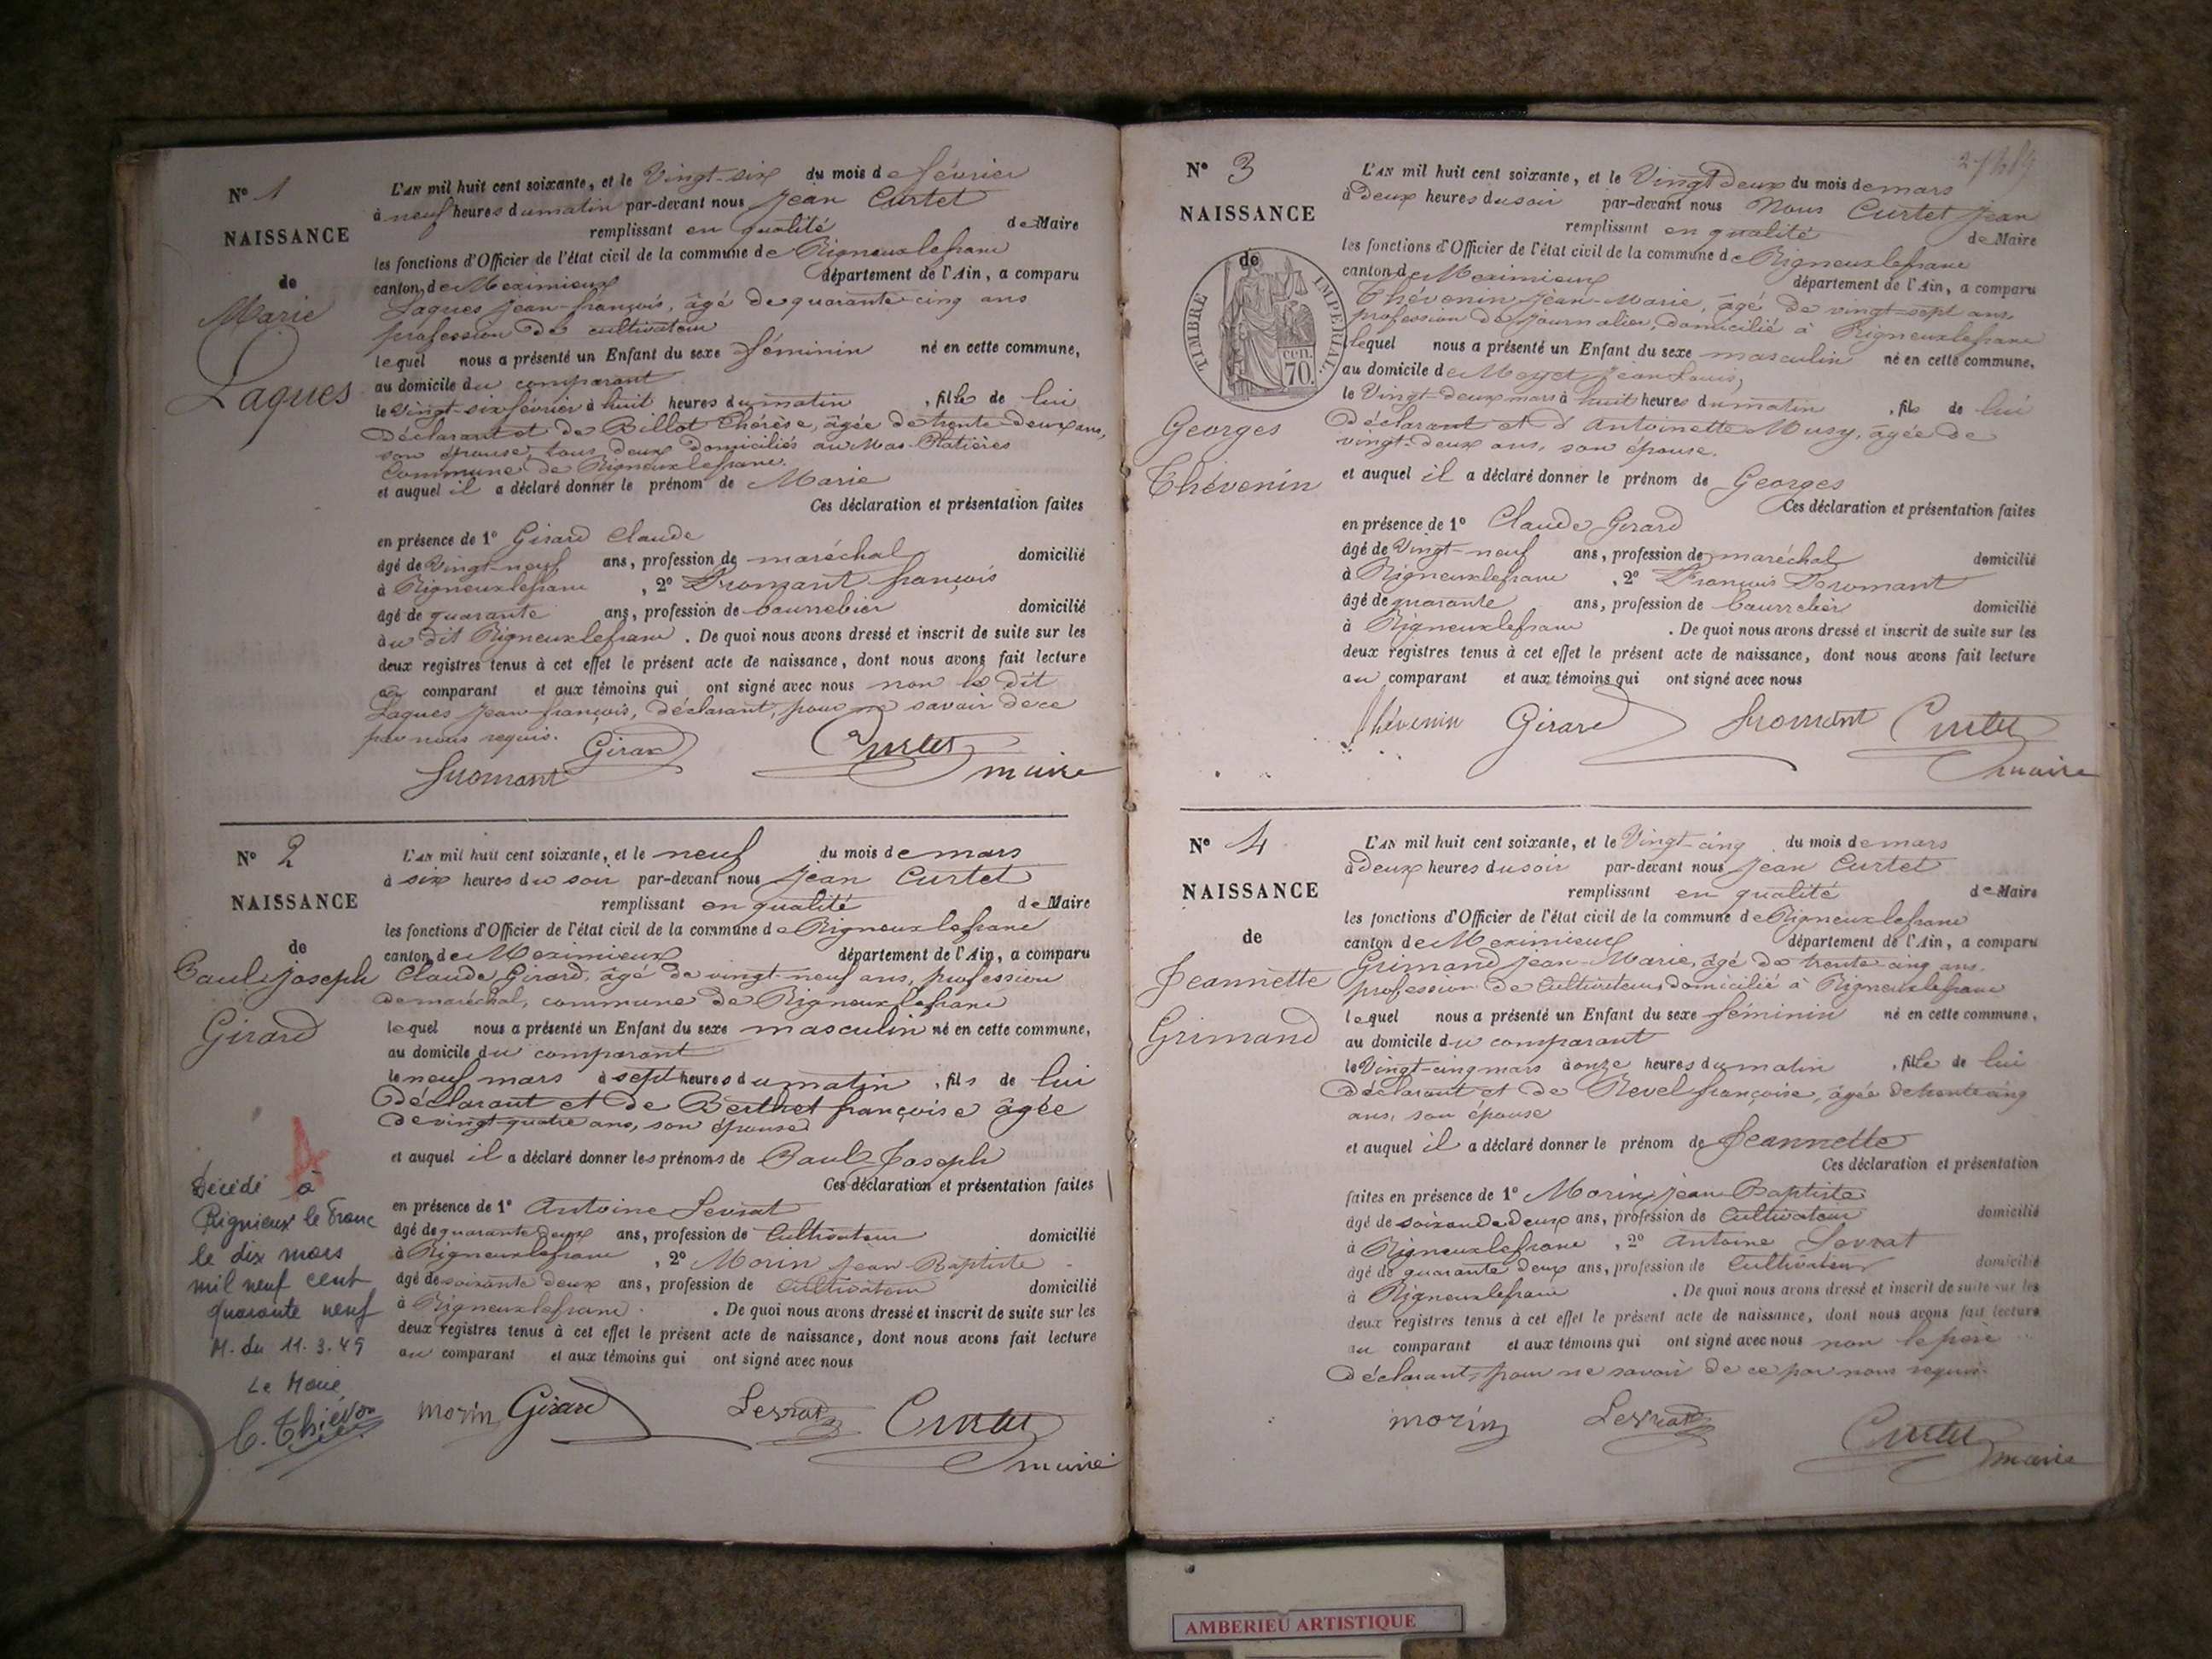 N° 1
NAISSANCE
de
Marie
Laques
L'AN mil huit cent soixante, et le Vingt-six du mois de février
à neuf heures du matin par-devant nous Jean Curtet
remplissant en qualité de Maire
les fonctions d'Officier de l'état civil de la commune de Rigneuxlefranc
canton de Meximieux département de l'Ain, a comparu
Laques Jean-françois, âgé de quarante-cinq ans
profession de cultivateur
lequel nous a présenté un Enfant du sexe féminin né en cette commune,
au domicile du comparant
le Vingt-six février à huit heures du matin, fille de lui
Déclarant et de Billot Thérèse, âgée de trente-deux ans,
son épouse, tous deux domiciliés au Mas-Platières
Commune de Rigneuxlefranc.
et auquel il a déclaré donner le prénom de Marie
Ces déclaration et présentation faites
en présence de 1° Girard Claude
âgé de Vingt-neuf ans, profession de maréchal domicilié
à Rigneuxlefranc, 2° Fromant françois
âgé de quarante ans, profession de bourrelier domicilié
au dit Rigneuxlefranc. De quoi nous avons dressé et inscrit de suite sur les
deux registres tenus à cet effet le présent acte de naissance, dont nous avons fait lecture
au comparant et aux témoins qui ont signé avec nous non le dit
Laques Jean-françois, déclarant, pour ne savoir de ce
par nous requis.
Girard Curtet
Fromant maire
N° 2
NAISSANCE
de
Paul Joseph
Girard
L'AN mil huit cent soixante, et le neuf du mois de mars
à six heures du soir par-devant nous Jean Curtet
remplissant en qualité de Maire
les fonctions d'Officier de l'état civil de la commune de Rigneuxlefranc
canton de Meximieux département de l'Ain, a comparu
Claude Girard, âgé de vingt-neuf ans, profession
de maréchal, commune de Rigneuxlefranc
lequel nous a présenté un Enfant du sexe masculin né en cette commune,
au domicile du comparant
le neuf mars à sept heures du matin, fils de lui
Déclarant et de Berthet françoise âgée
de vingt-quatre ans, son épouse
et auquel il a déclaré donner les prénoms de Paul-Joseph
Ces déclaration et présentation faites
en présence de 1° Antoine Levrat
âgé de quarante deux ans, profession de Cultivateur domicilié
à Rigneuxlefranc, 2° Morin Jean-Baptiste
âgé de soixante deux ans, profession de Cultivateur domicilié
à Rigneuxlefranc. De quoi nous avons dressé et inscrit de suite sur les
deux registres tenus à cet effet le présent acte de naissance, dont nous avons fait lecture
au comparant et aux témoins qui ont signé avec nous
morin Girard Levrat Curtet
maire
A
Décédé à
Rignieux le Franc
le dix mars
mil neuf cent
quarante neuf
M. du 11.3.49
Le Maire
N° 3
NAISSANCE
de
TIMBRE IMPERIAL
70 cen.
Georges
Thévenin
L'AN mil huit cent soixante, et le Vingt deux du mois de mars
à Deux heures du soir par-devant nous Nous Curtet Jean
remplissant en qualité de Maire
les fonctions d'Officier de l'état civil de la commune de Rigneuxlefranc
canton de Meximieux département de l'Ain, a comparu
Thévenin Jean-Marie, âgé de vingt-sept ans
profession de Journalier, domicilié à Rigneuxlefranc
lequel nous a présenté un Enfant du sexe masculin né en cette commune,
au domicile de Jean Louis,
le Vingt-deux mars à huit heures du matin, fils de lui
Déclarant et d'Antoinette Musy, âgée de
vingt-deux ans, son épouse.
et auquel il a déclaré donner le prénom de Georges
Ces déclaration et présentation faites
en présence de 1° Claude Girard
âgé de Vingt-neuf ans, profession de maréchal domicilié
à Rigneuxlefranc, 2° François Fromant
âgé de quarante ans, profession de bourrelier domicilié
à Rigneuxlefranc. De quoi nous avons dressé et inscrit de suite sur les
deux registres tenus à cet effet le présent acte de naissance, dont nous avons fait lecture
au comparant et aux témoins qui ont signé avec nous
Thévenin Girard Fromant Curtet
maire
N° 4
NAISSANCE
de
Jeannette
Grimand
L'AN mil huit cent soixante, et le Vingt-cinq du mois de mars
à deux heures du soir par-devant nous Jean Curtet
remplissant en qualité de Maire
les fonctions d'Officier de l'état civil de la commune de Rigneuxlefranc
canton de Meximieux département de l'Ain, a comparu
Grimand Jean-Marie, âgé de trente cinq ans.
profession de Cultivateur, domicilié à Rigneuxlefranc
lequel nous a présenté un Enfant du sexe féminin né en cette commune,
au domicile du comparant
le Vingt-cinq mars à onze heures du matin, fille de lui
Déclarant et de Revel françoise, âgée de trente cinq
ans, son épouse
et auquel il a déclaré donner le prénom de Jeannette
Ces déclaration et présentation
faites en présence de 1° Morin Jean Baptiste
âgé de soixante deux ans, profession de Cultivateur domicilié
à Rigneuxlefranc, 2° Antoine Levrat
âgé de quarante deux ans, profession de Cultivateur domicilié
à Rigneuxlefranc. De quoi nous avons dressé et inscrit de suite sur les
deux registres tenus à cet effet le présent acte de naissance, dont nous avons fait lecture
au comparant et aux témoins qui ont signé avec nous non le père
Déclarant, pour ne savoir de ce par nous requis.
morin Levrat Curtet
maire
AMBERIEU ARTISTIQUE